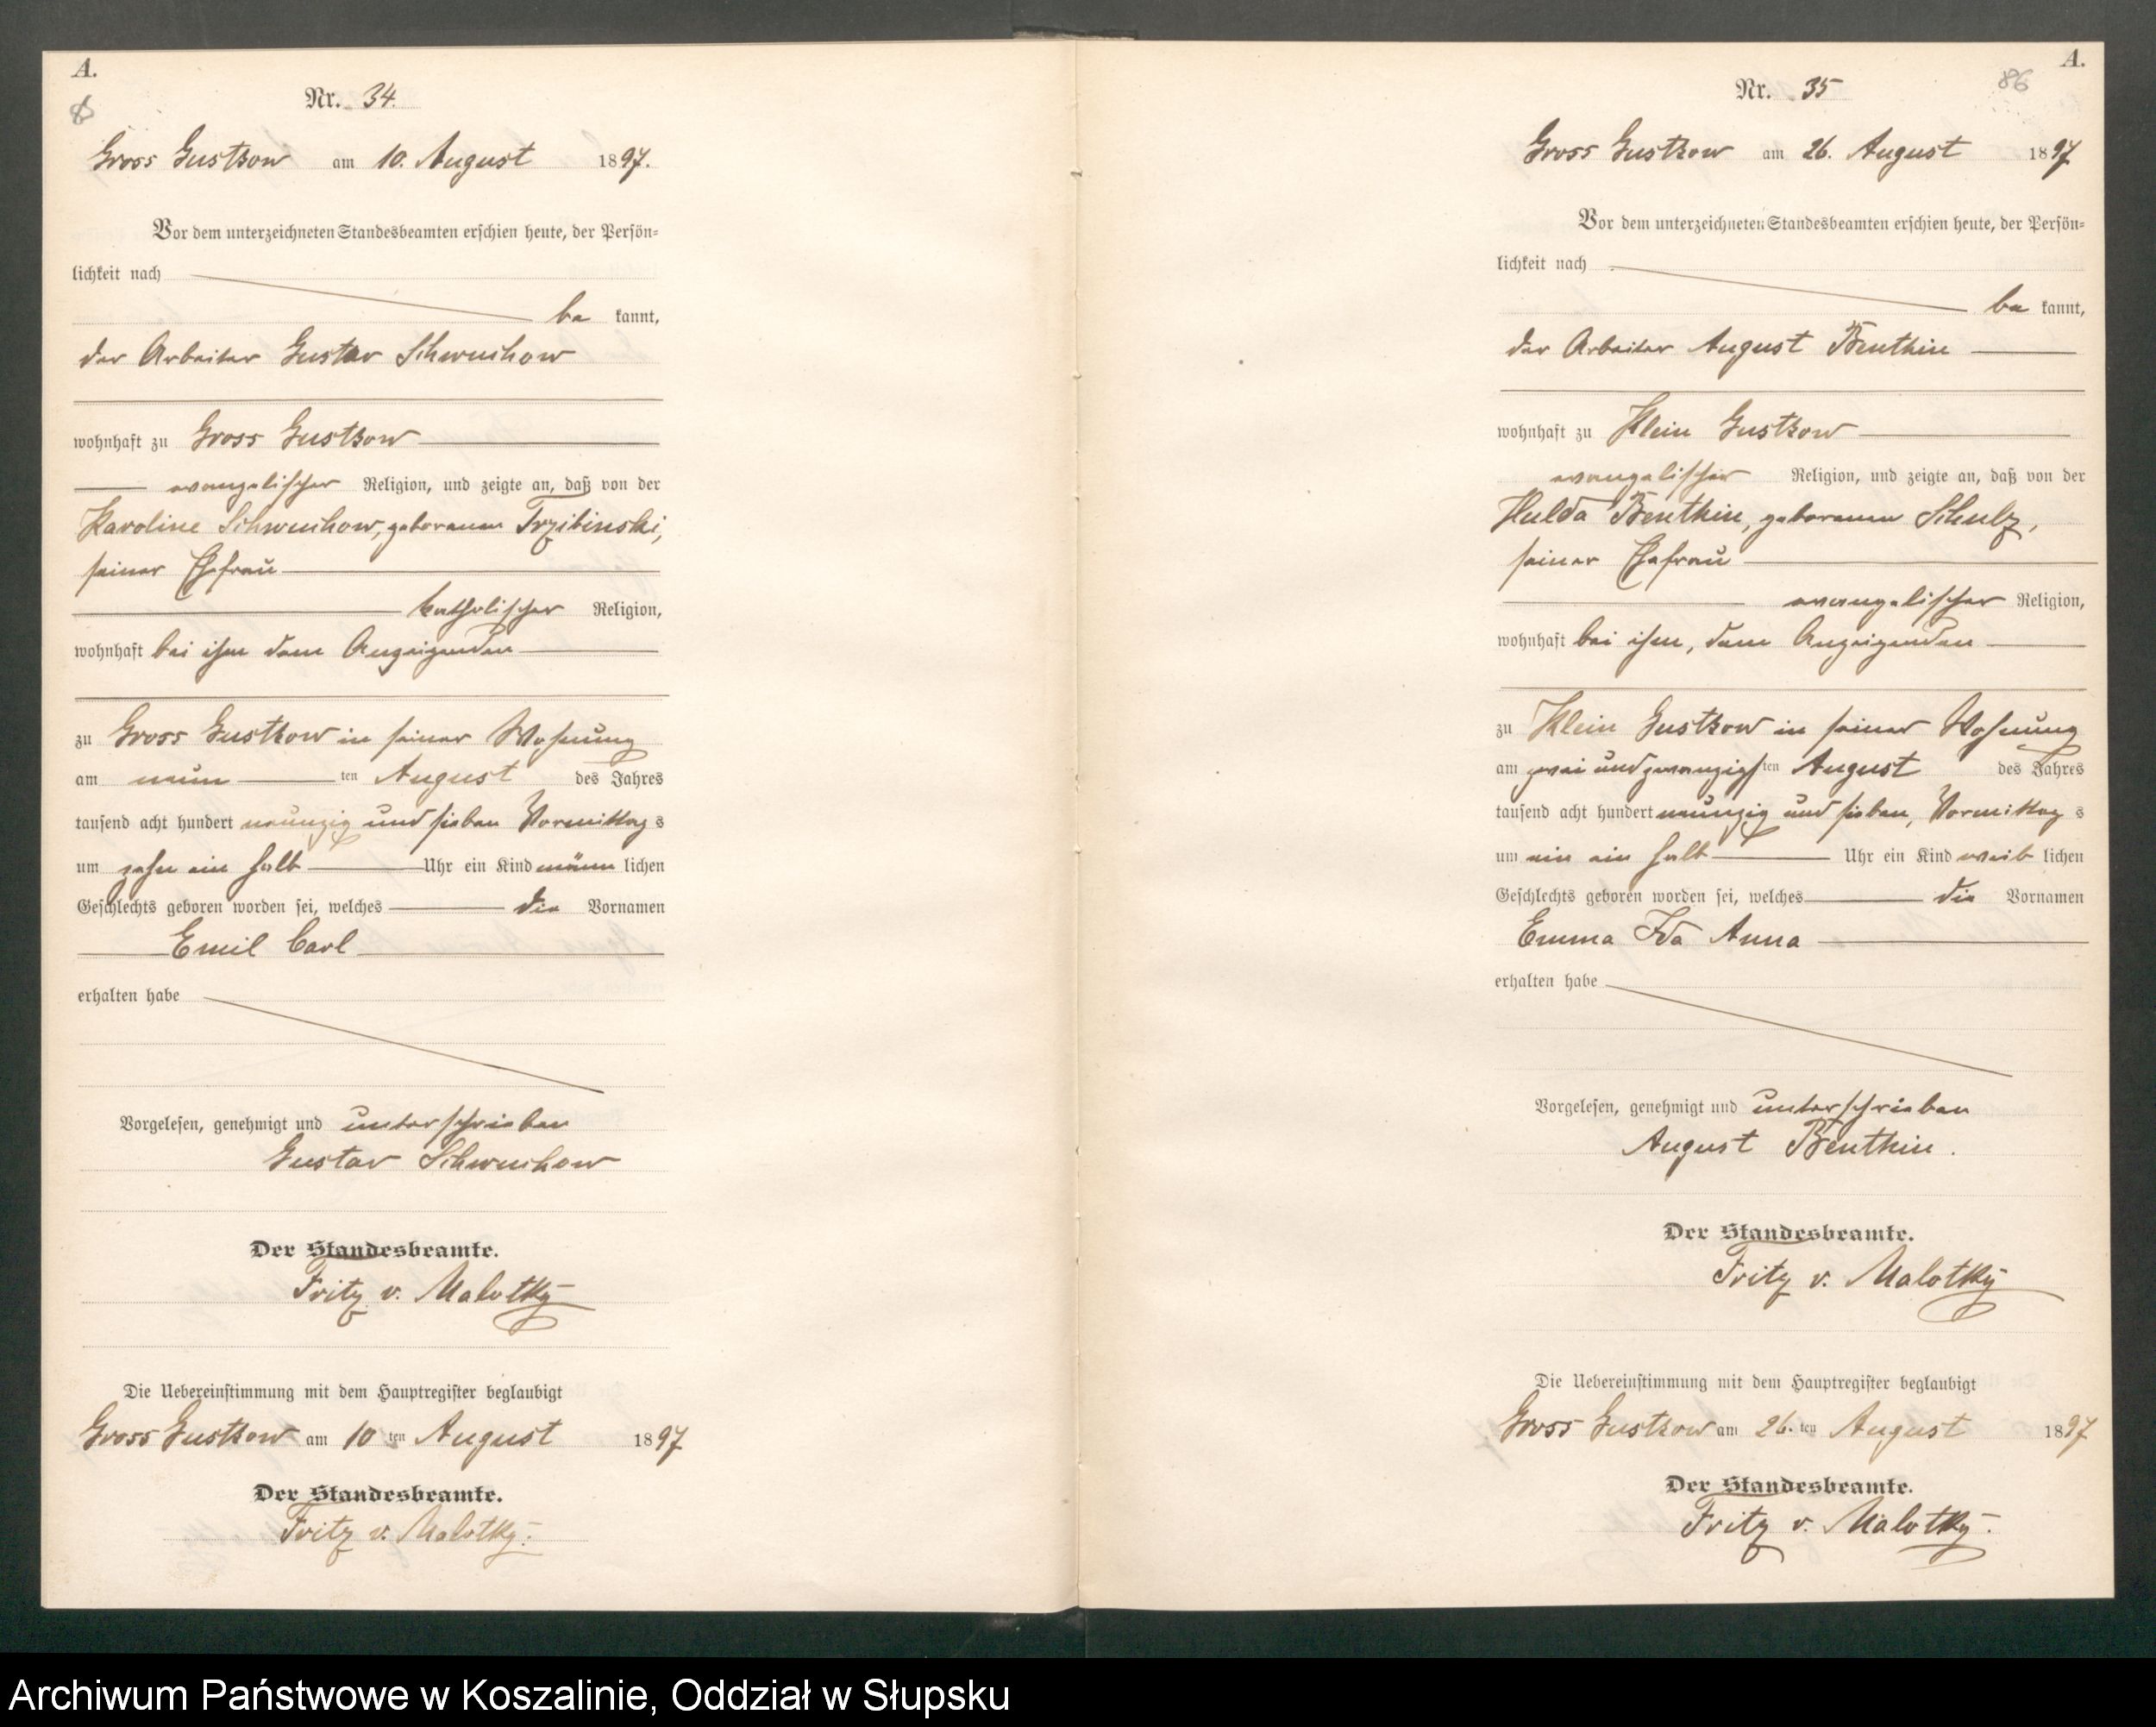 A.
Nr. 34.
Gross Gustkow am 10. August 1897.
Vor dem unterzeichneten Standesbeamten erschien heute, der Persön-
lichkeit nach
be kannt,
der Arbeiter Gustav Schwuchow
wohnhaft zu Gross Gustkow
evangelischer Religion, und zeigte an, daß von der
Karoline Schwuchow, geborenen Trzibinski,
seiner Ehefrau
katholischer Religion,
wohnhaft bei ihm dem Anzeigenden
zu Gross Gustkow in seiner Wohnung
am neun ten August des Jahres
tausend acht hundert neunzig und sieben Vormittag s
um zehn ein halb Uhr ein Kind männ lichen
Geschlechts geboren worden sei, welches die Vornamen
Emil Carl
erhalten habe
Vorgelesen, genehmigt und unterschrieben
Gustav Schwuchow
Der Standesbeamte.
Fritz v. Malotky
Die Uebereinstimmung mit dem Hauptregister beglaubigt
Gross Gustkow am 10 ten August 1897
Der Standesbeamte.
Fritz v. Malotky.
A.
86
Nr. 35
Gross Gustkow am 26. August 1897
Vor dem unterzeichneten Standesbeamten erschien heute, der Persön-
lichkeit nach
be kannt,
der Arbeiter August Benthin
wohnhaft zu Klein Gustkow
evangelischer Religion, und zeigte an, daß von der
Hulda Benthin, geborenen Schulz,
seiner Ehefrau
evangelischer Religion,
wohnhaft bei ihm, dem Anzeigenden
zu Klein Gustkow in seiner Wohnung
am zwei und zwanzigs ten August des Jahres
tausend acht hundert neunzig und sieben, Vormittag s
um ein ein halb Uhr ein Kind weib lichen
Geschlechts geboren worden sei, welches die Vornamen
Emma Ida Anna
erhalten habe
Vorgelesen, genehmigt und unterschrieben
August Benthin.
Der Standesbeamte.
Fritz v. Malotky
Die Uebereinstimmung mit dem Hauptregister beglaubigt
Gross Gustkow am 26. ten August 1897
Der Standesbeamte.
Fritz v. Malotky.
Archiwum Państwowe w Koszalinie, Oddział w Słupsku